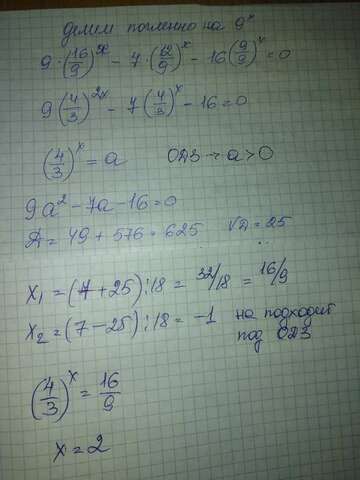 делим почленно на 9ˣ
9·(16/9)ˣ - 7·(12/9)ˣ - 16(9/9)ˣ = 0
9(4/3)²ˣ - 7(4/3)ˣ - 16 = 0
(4/3)ˣ = a ОДЗ → a > 0
9a² - 7a - 16 = 0
D = 49 + 576 = 625 √D = 25
x₁ = (7 + 25) : 18 = 32/18 = 16/9
x₂ = (7 - 25) : 18 = -1 на подходит
под ОДЗ
(4/3)ˣ = 16/9
x = 2